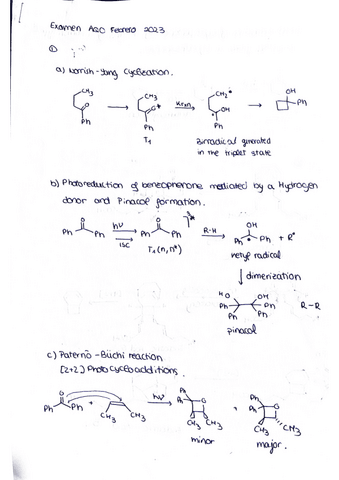 Examen AQC Febrero 2023
①
a) Norrish-Yang Cyclization.
CH3 CH3 CH2• OH
O O* Krxn OH Ph
Ph Ph Ph
T1 Birradical generated
in the triplet state
b) Photoreduction of benzophenone mediated by a Hydrogen
donor and Pinacol formation.
O O * OH
Ph Ph hν Ph Ph R-H Ph Ph + R•
ISC T1(n,π*) ketyl radical
dimerization
HO OH
Ph Ph R-R
Ph Ph
pinacol
c) Paternò-Büchi reaction
[2+2] Photocycloadditions.
O Ph Ph
Ph Ph + hν Ph O + Ph O
CH3 CH3 CH3 CH3 CH3 CH3
minor major.